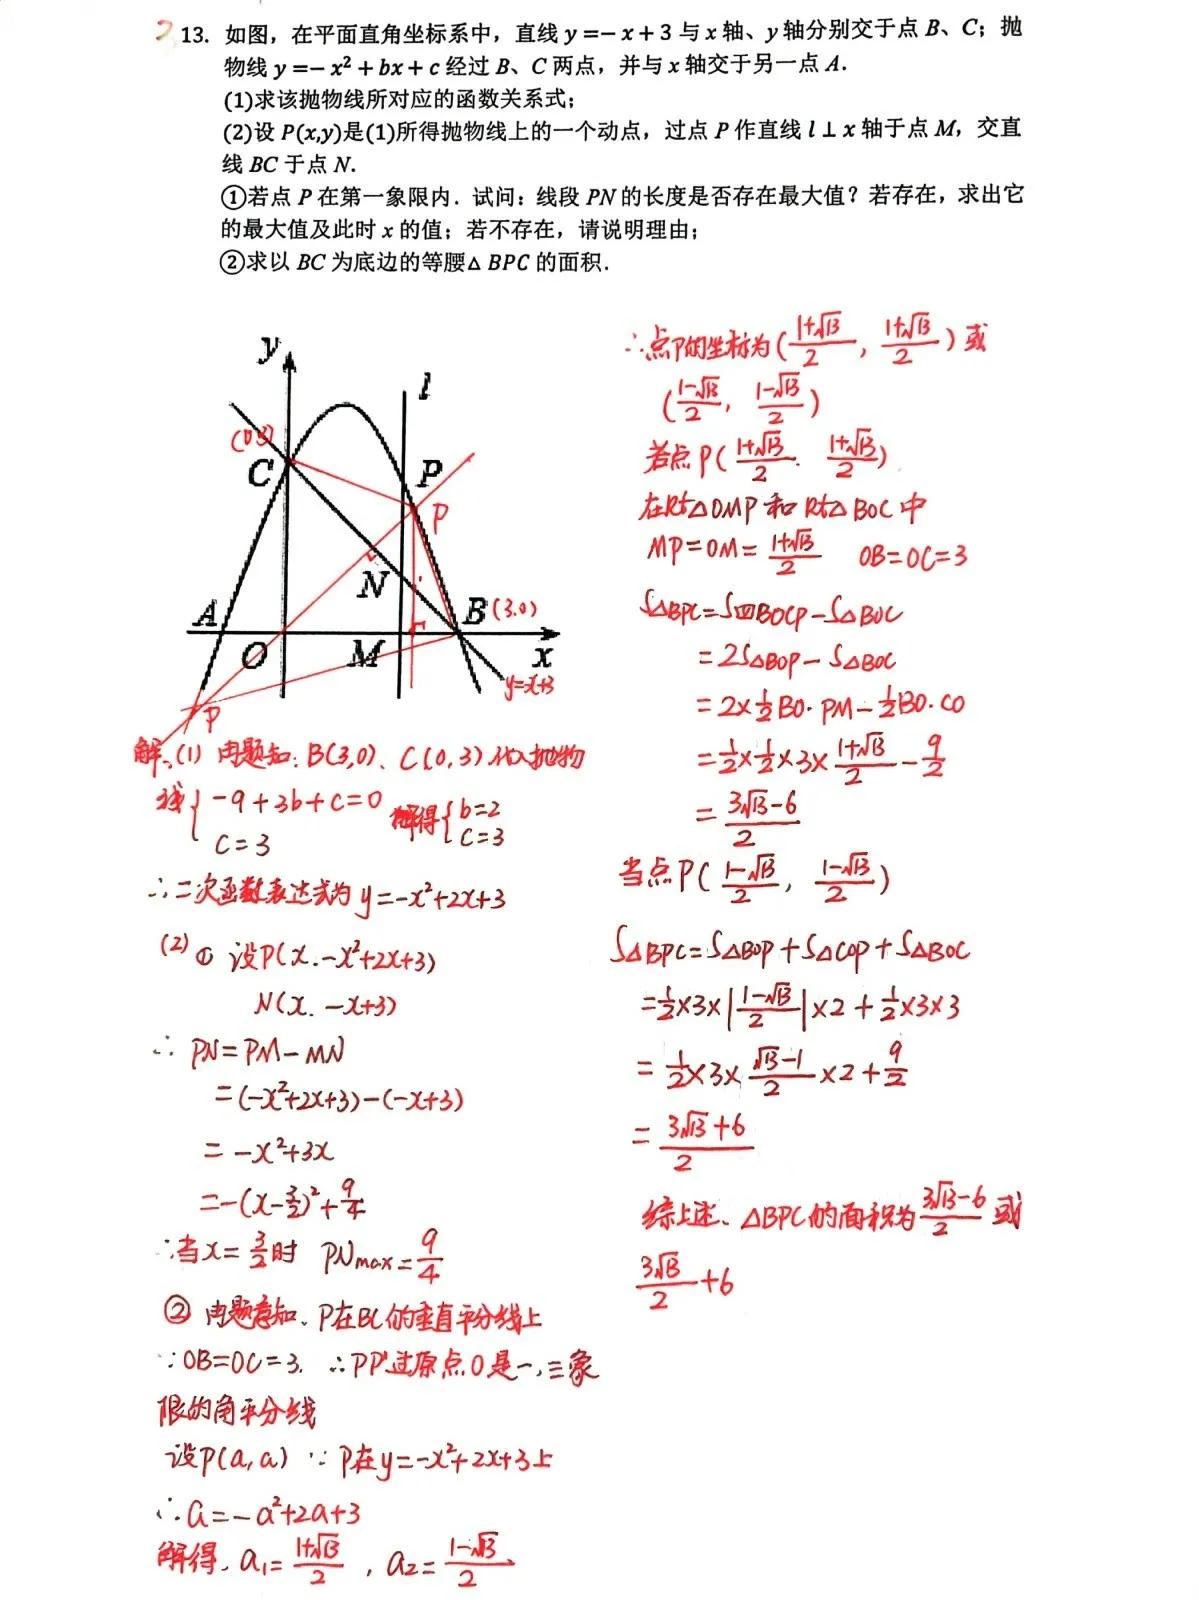 13. 如图，在平面直角坐标系中，直线 y =− x + 3 与 x 轴、y 轴分别交于点 B、C；抛
物线 y =− x² + bx + c 经过 B、C 两点，并与 x 轴交于另一点 A.
(1)求该抛物线所对应的函数关系式；
(2)设 P(x,y)是(1)所得抛物线上的一个动点，过点 P 作直线 l ⊥ x 轴于点 M，交直
线 BC 于点 N.
①若点 P 在第一象限内．试问：线段 PN 的长度是否存在最大值？若存在，求出它
的最大值及此时 x 的值；若不存在，请说明理由；
②求以 BC 为底边的等腰△ BPC 的面积.
y
l
(0 3)
C
P
P
N
A
B (3.0)
O
M
x
y=-x+3
P
解、(1) 由题知：B(3,0)、C(0,3)代入抛物
线{ -9+3b+c=0
c=3
解得{ b=2
c=3
∴二次函数表达式为y=-x²+2x+3
(2) ① 设P(x.-x²+2x+3)
N(x. -x+3)
∴ PN=PM-MN
=(-x²+2x+3)-(-x+3)
= -x²+3x
=-(x-3/2)²+9/4
∴当x=3/2时 PNmax=9/4
② 由题意知、P在BC的垂直平分线上
∵OB=OC=3. ∴PP'过原点O是一,三象
限的角平分线
设P(a,a) ∵ P在y=-x²+2x+3上
∴a=-a²+2a+3
解得、a₁=(1+√13)/2 , a₂=(1-√13)/2
∴点P的坐标为((1+√13)/2, (1+√13)/2)或
((1-√13)/2, (1-√13)/2)
若点P((1+√13)/2. (1+√13)/2)
在Rt△OMP和Rt△BOC中
MP=OM=(1+√13)/2 OB=OC=3
S△BPC=S四BOCP-S△BOC
=2S△BOP-S△BOC
=2×1/2BO·PM-1/2BO·CO
=1/2×1/2×3×(1+√13)/2-9/2
=(3√13-6)/2
当点P((1-√13)/2, (1-√13)/2)
S△BPC=S△BOP+S△COP+S△BOC
=1/2×3×|(1-√13)/2|×2+1/2×3×3
=1/2×3×(√13-1)/2×2+9/2
=(3√13+6)/2
综上述、△BPC的面积为(3√13-6)/2或
3√13/2+6